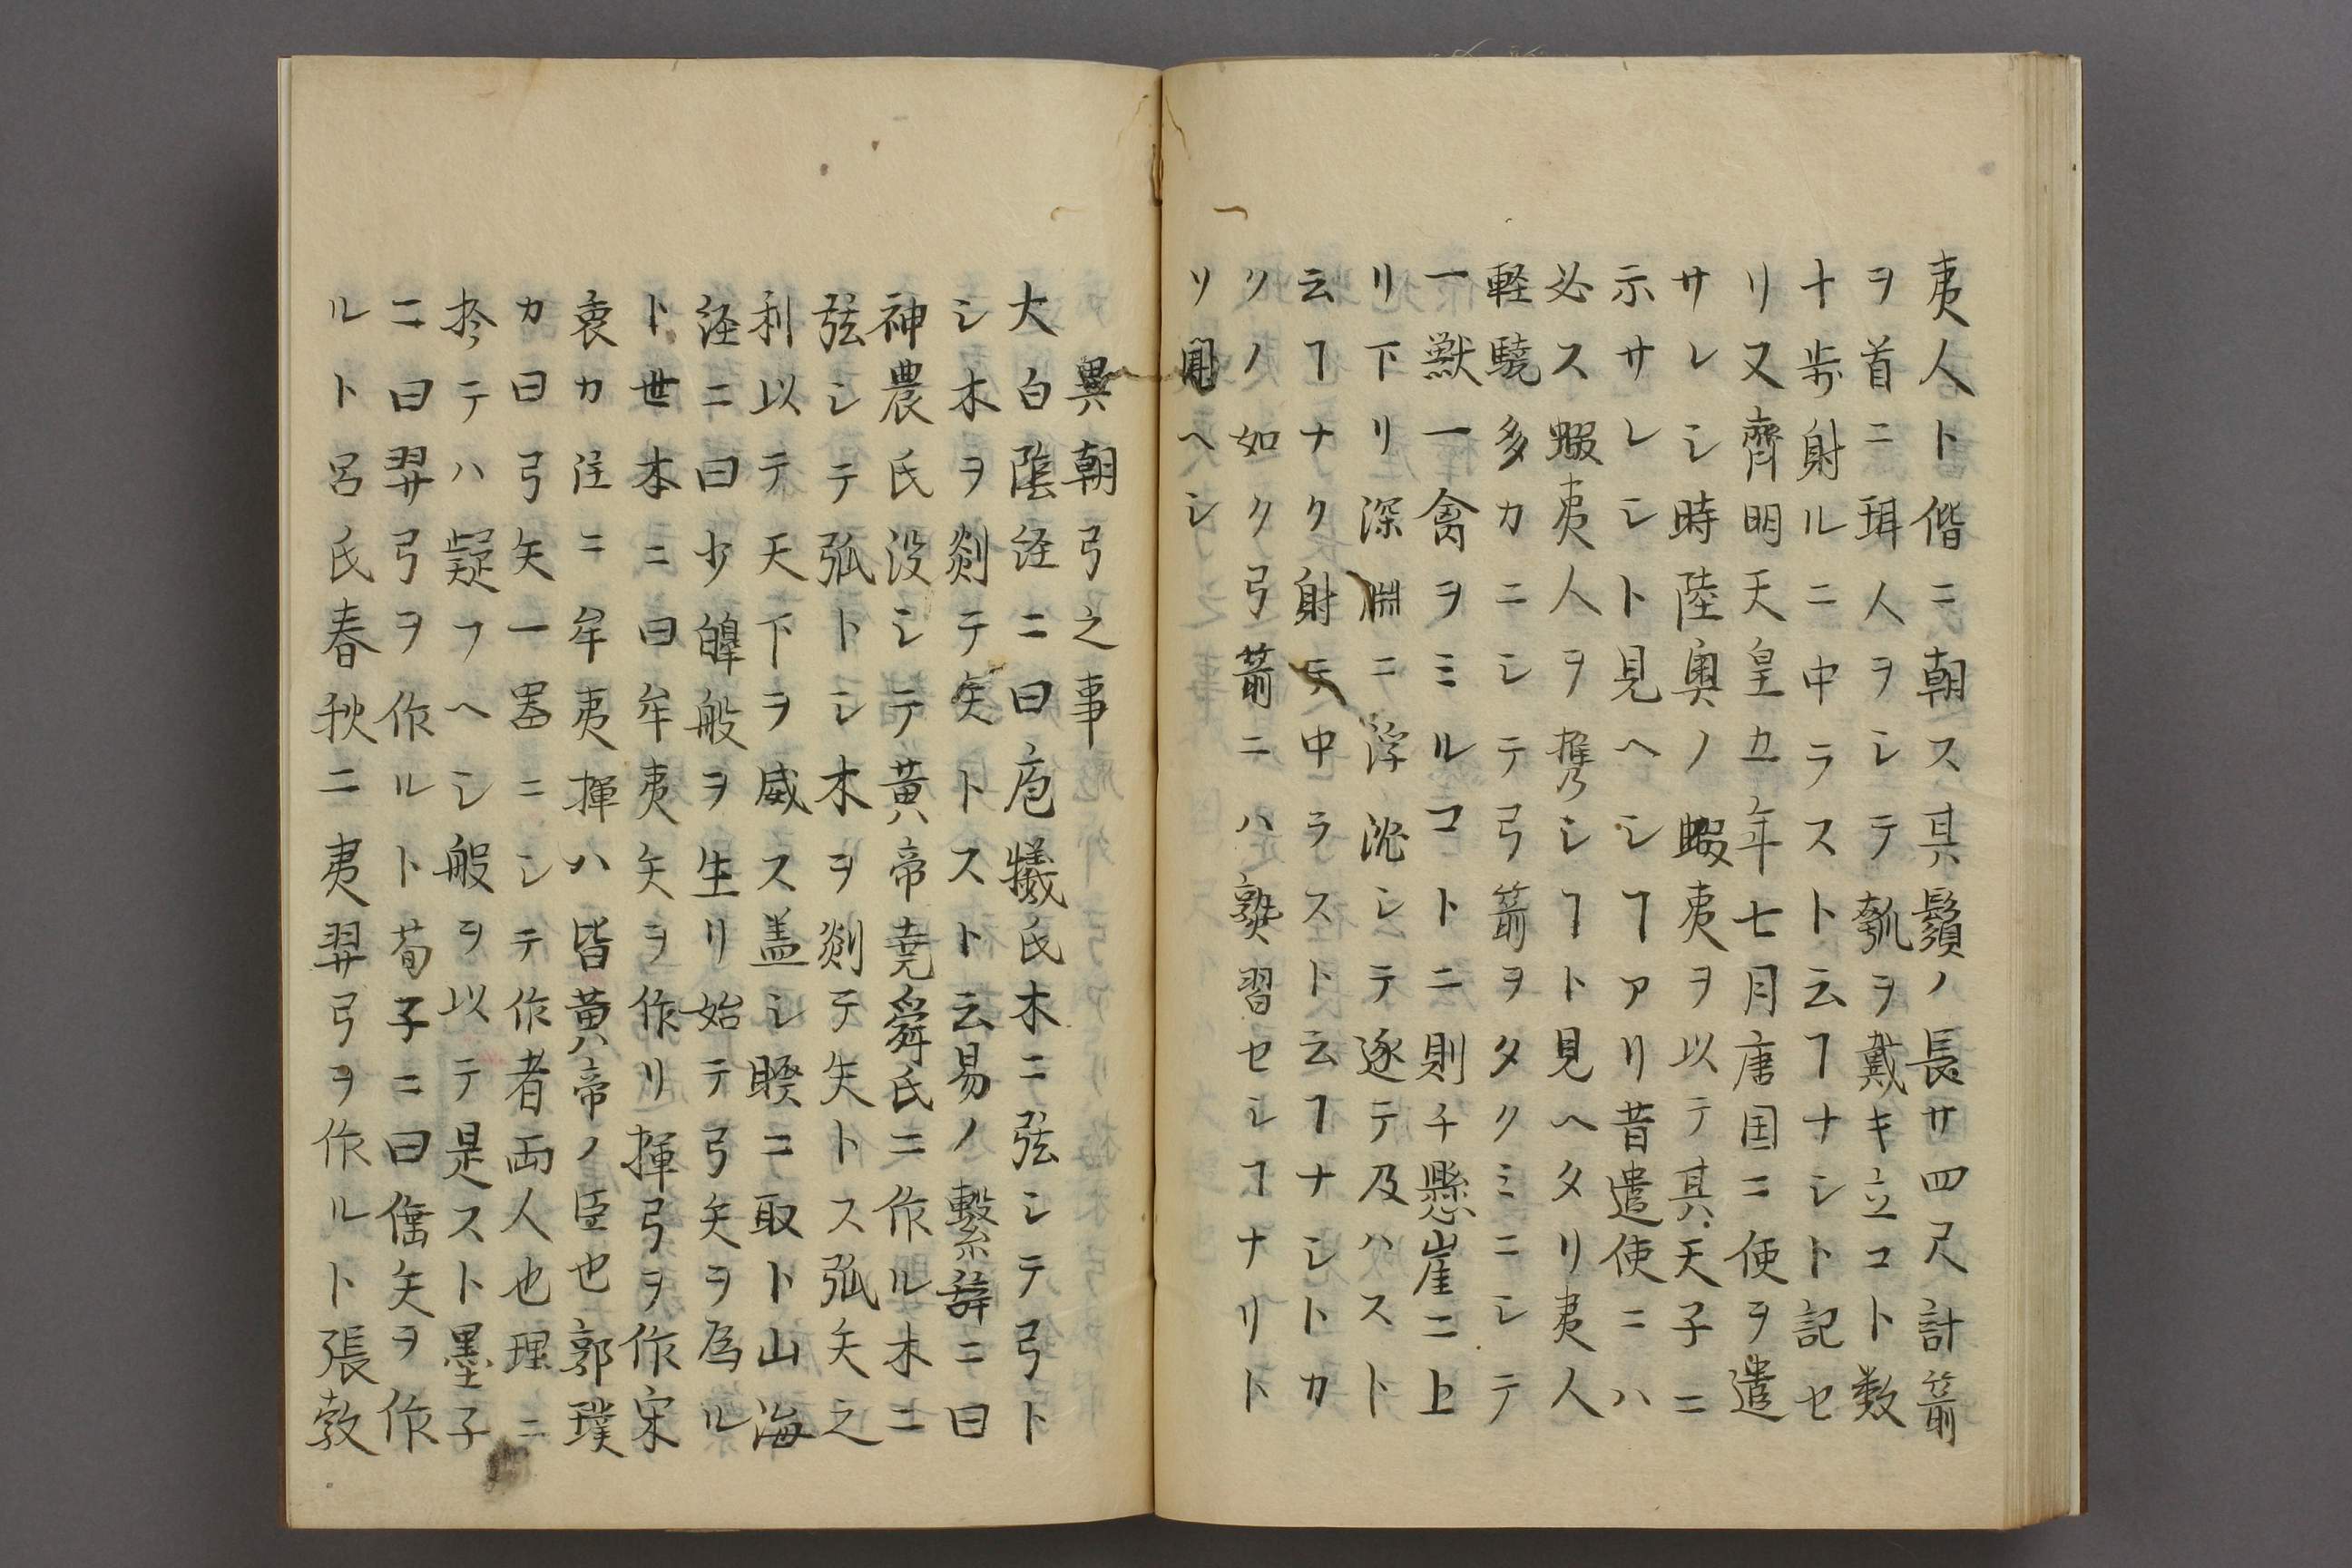 夷人ト偕ニ朝ス其鬚ノ長サ四尺計箭
ヲ首ニ珥人ヲシテ瓠ヲ戴キ立コト数
十歩射ルニ中ラスト云ヿナシト記セ
リ又齊明天皇五年七月唐国ニ使ヲ遣
サレシ時陸奥ノ蝦夷ヲ以テ其天子ニ
示サレシト見ヘシヿアリ昔遣使ニハ
必ス蝦夷人ヲ携シヿト見ヘタリ夷人
軽驍多カニシテ弓箭ヲタクミニシテ
一獣一禽ヲミルコトニ則チ懸崖ニ上
リ下リ深淵ニ浮沈シテ逐テ及ハスト
云ヿナク射テ中ラスト云ヿナシトカ
クノ如ク弓箭ニハ熟習セシヿナリト
ソ聞ヘシ
一
異朝弓之事
大白陰経ニ曰庖犠氏木ニ弦シテ弓ト
シ木ヲ剡テ矢トスト云易ノ繋辞ニ曰
神農氏没シテ黄帝尭舜氏ニ作ル木ニ
弦シテ弧トシ木ヲ剡テ矢トス弧矢之
利以テ天下ヲ威ス盖シ睽ニ取ト山海
経ニ曰少皥般ヲ生リ始テ弓矢ヲ為ル
ト世本ニ曰牟夷矢ヲ作リ揮弓ヲ作宋
衷カ注ニ牟夷揮ハ皆黄帝ノ臣也郭璞
カ曰弓矢一器ニシテ作者両人也理ニ
於テハ疑フヘシ般ヲ以テ是スト墨子
ニ曰羿弓ヲ作ルト荀子ニ曰倕矢ヲ作
ルト呂氏春秋ニ夷羿弓ヲ作ルト張敦